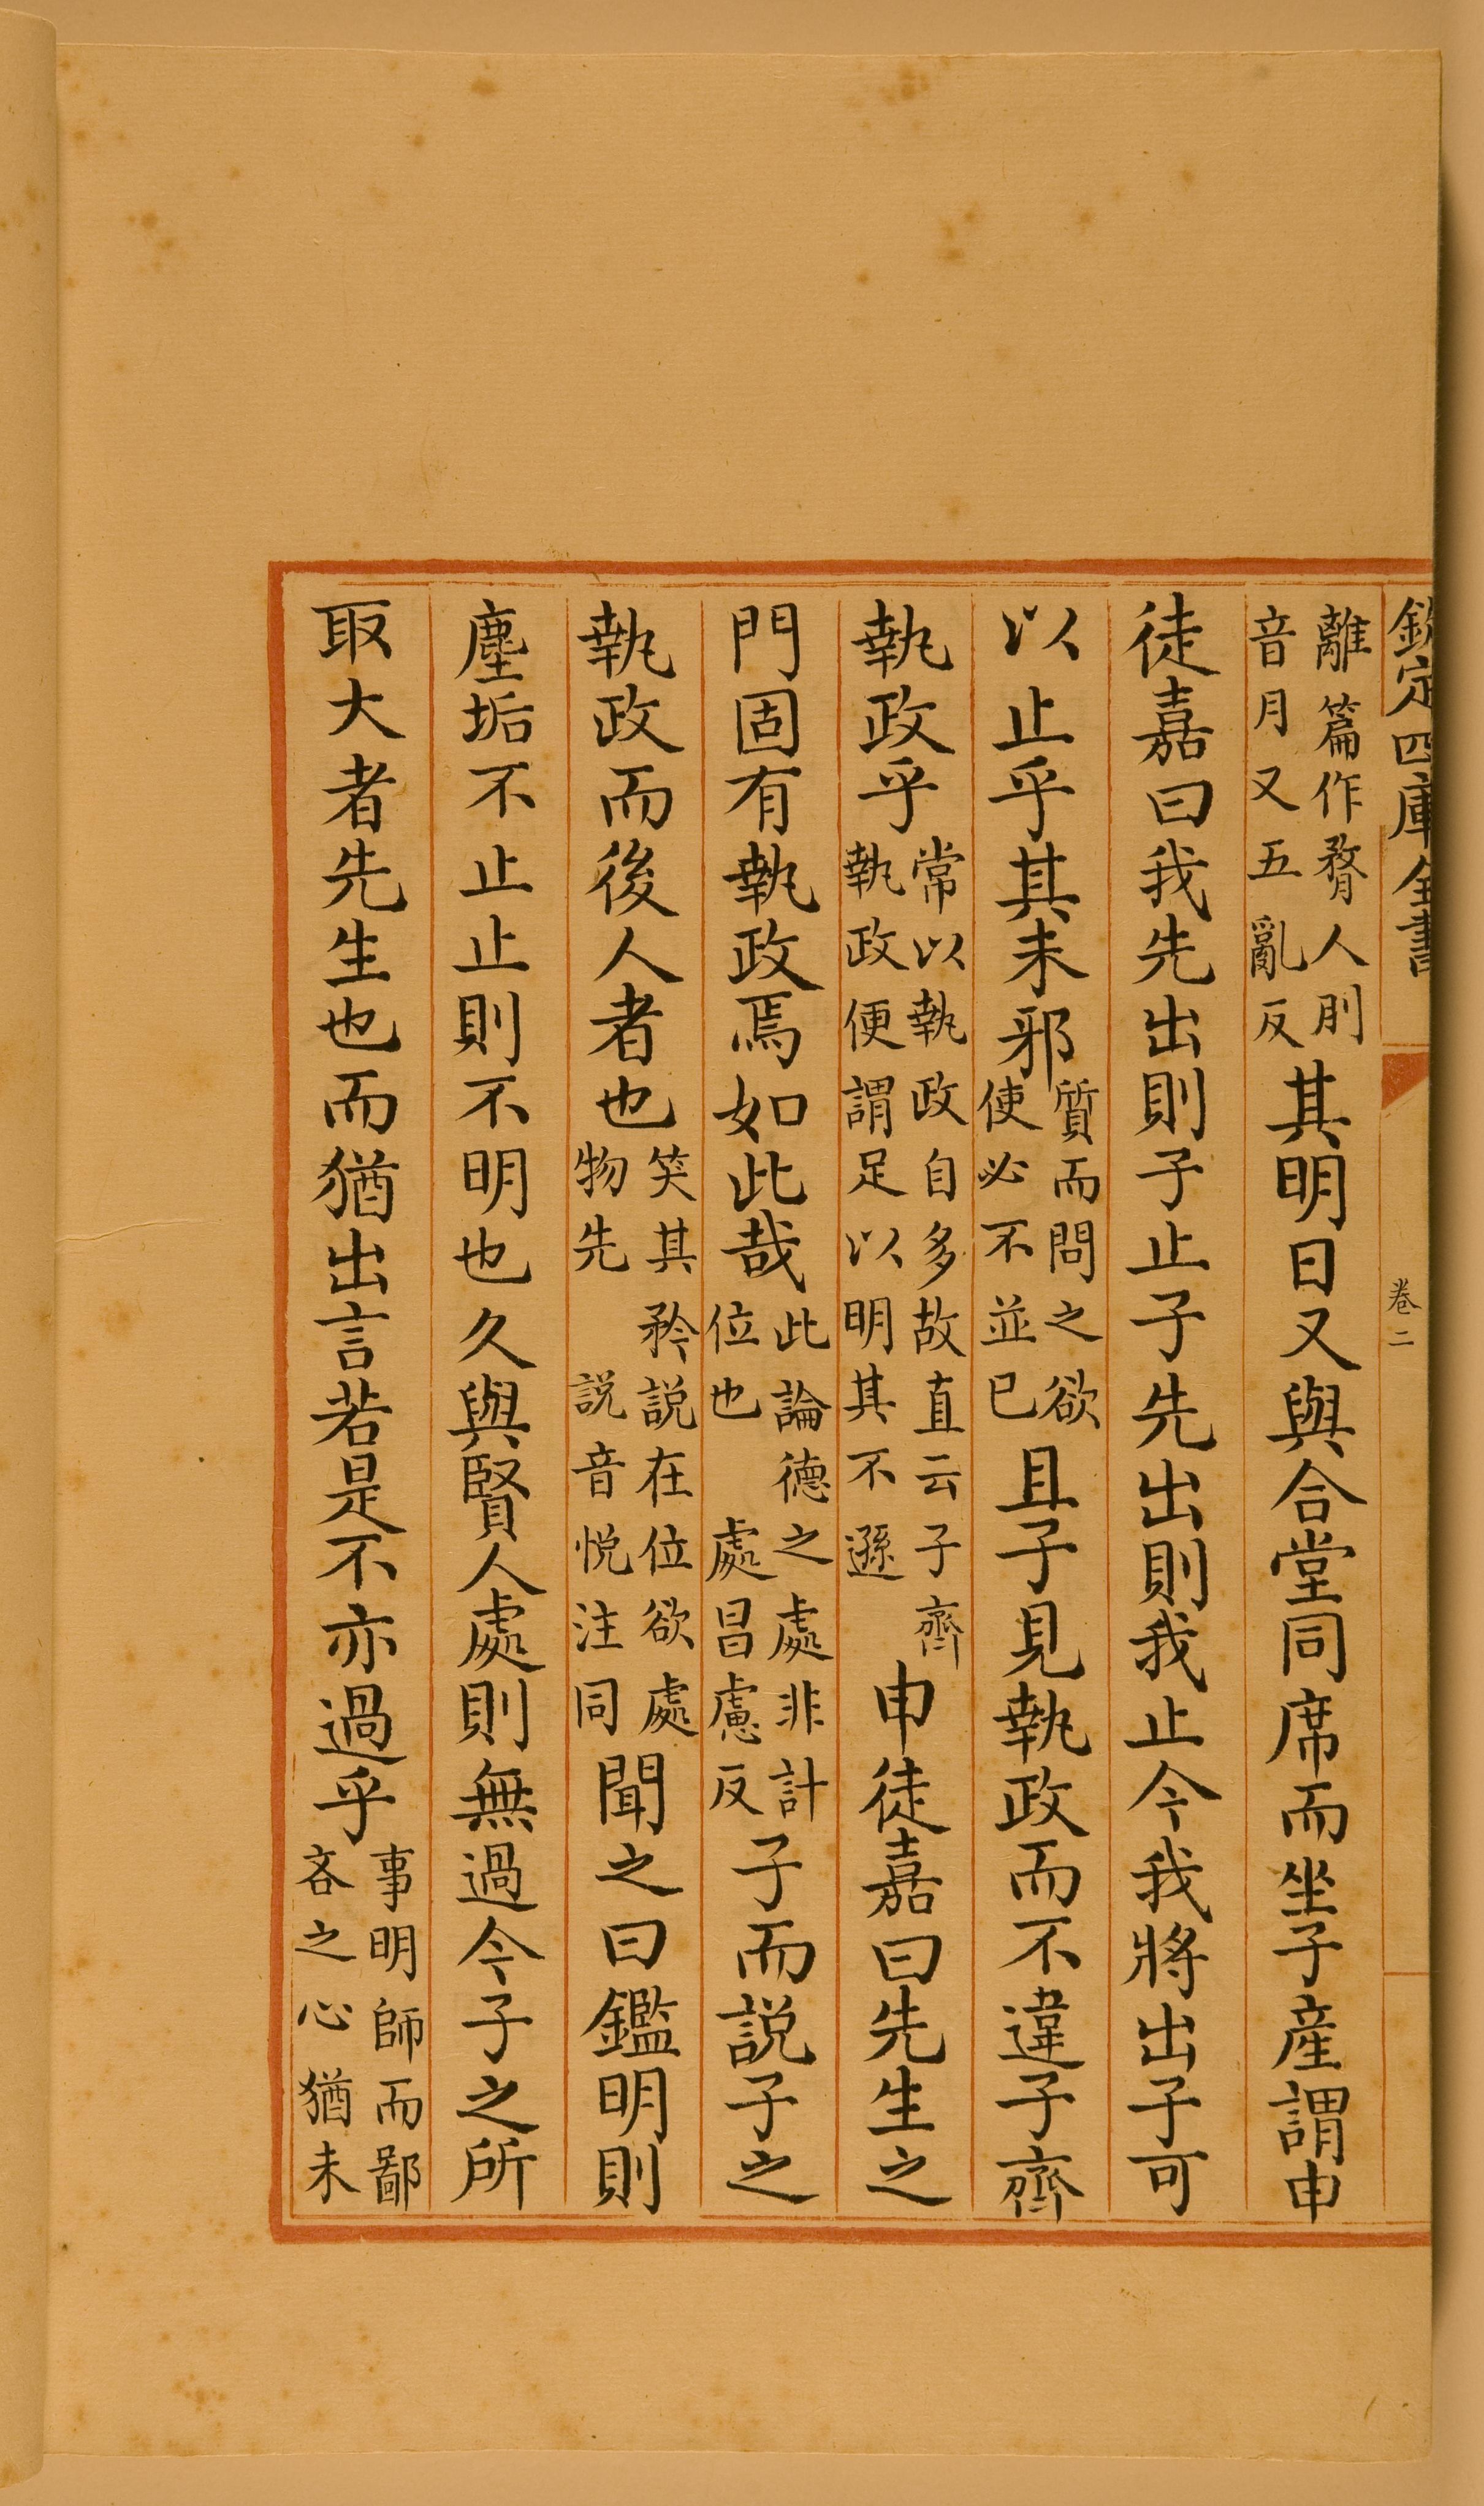 欽定四庫全書
卷二
離篇作瞀人刖
音月又五亂反
其明日又與合堂同席而坐子産謂申
徒嘉曰我先出則子止子先出則我止今我將出子可
以止乎其未邪
質而問之欲
使必不並已
且子見執政而不違子齊
執政乎
常以執政自多故直云子齊
執政便謂足以明其不遜
申徒嘉曰先生之
門固有執政焉如此哉
此論德之處非計
位也 處昌慮反
子而説子之
執政而後人者也
笑其矜説在位欲處
物先 説音悦注同
聞之曰鑑明則
塵垢不止止則不明也久與賢人處則無過今子之所
取大者先生也而猶出言若是不亦過乎
事明師而鄙
吝之心猶未